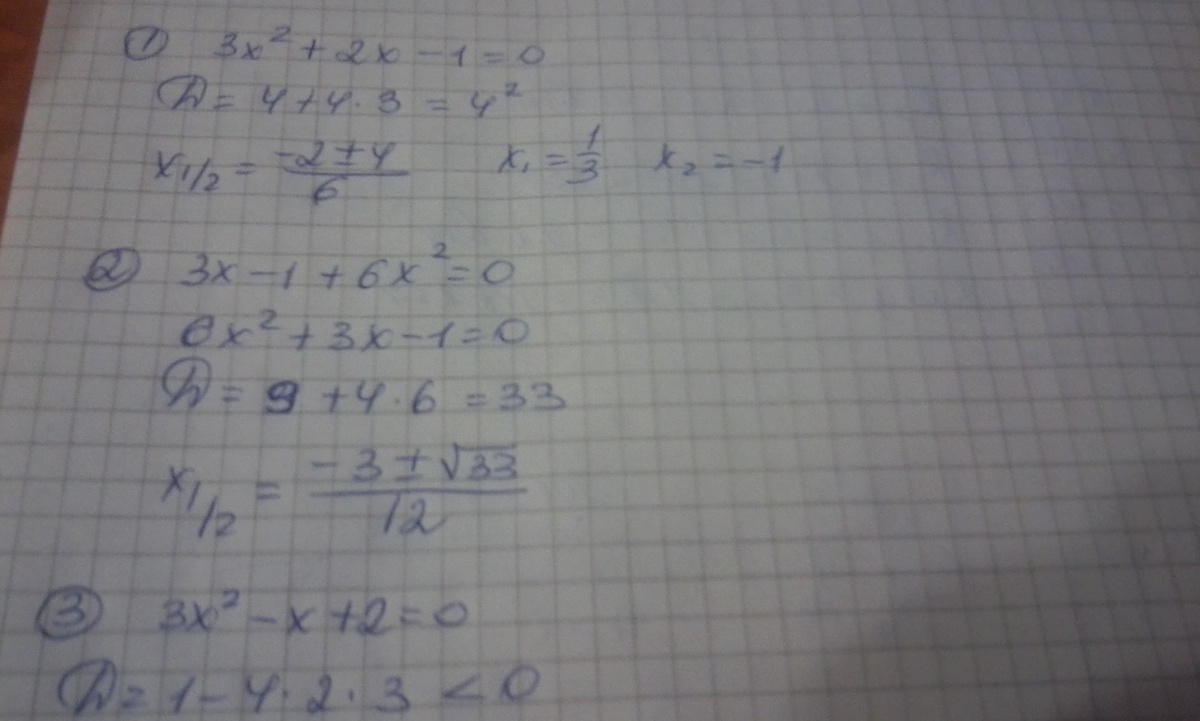 ① 3x² + 2x − 1 = 0
D = 4 + 4·3 = 4²
x₁/₂ = (−2 ± 4)/6 x₁ = 1/3 x₂ = −1
② 3x − 1 + 6x² = 0
6x² + 3x − 1 = 0
D = 9 + 4·6 = 33
x₁/₂ = (−3 ± √33)/12
③ 3x² − x + 2 = 0
D = 1 − 4·2·3 < 0